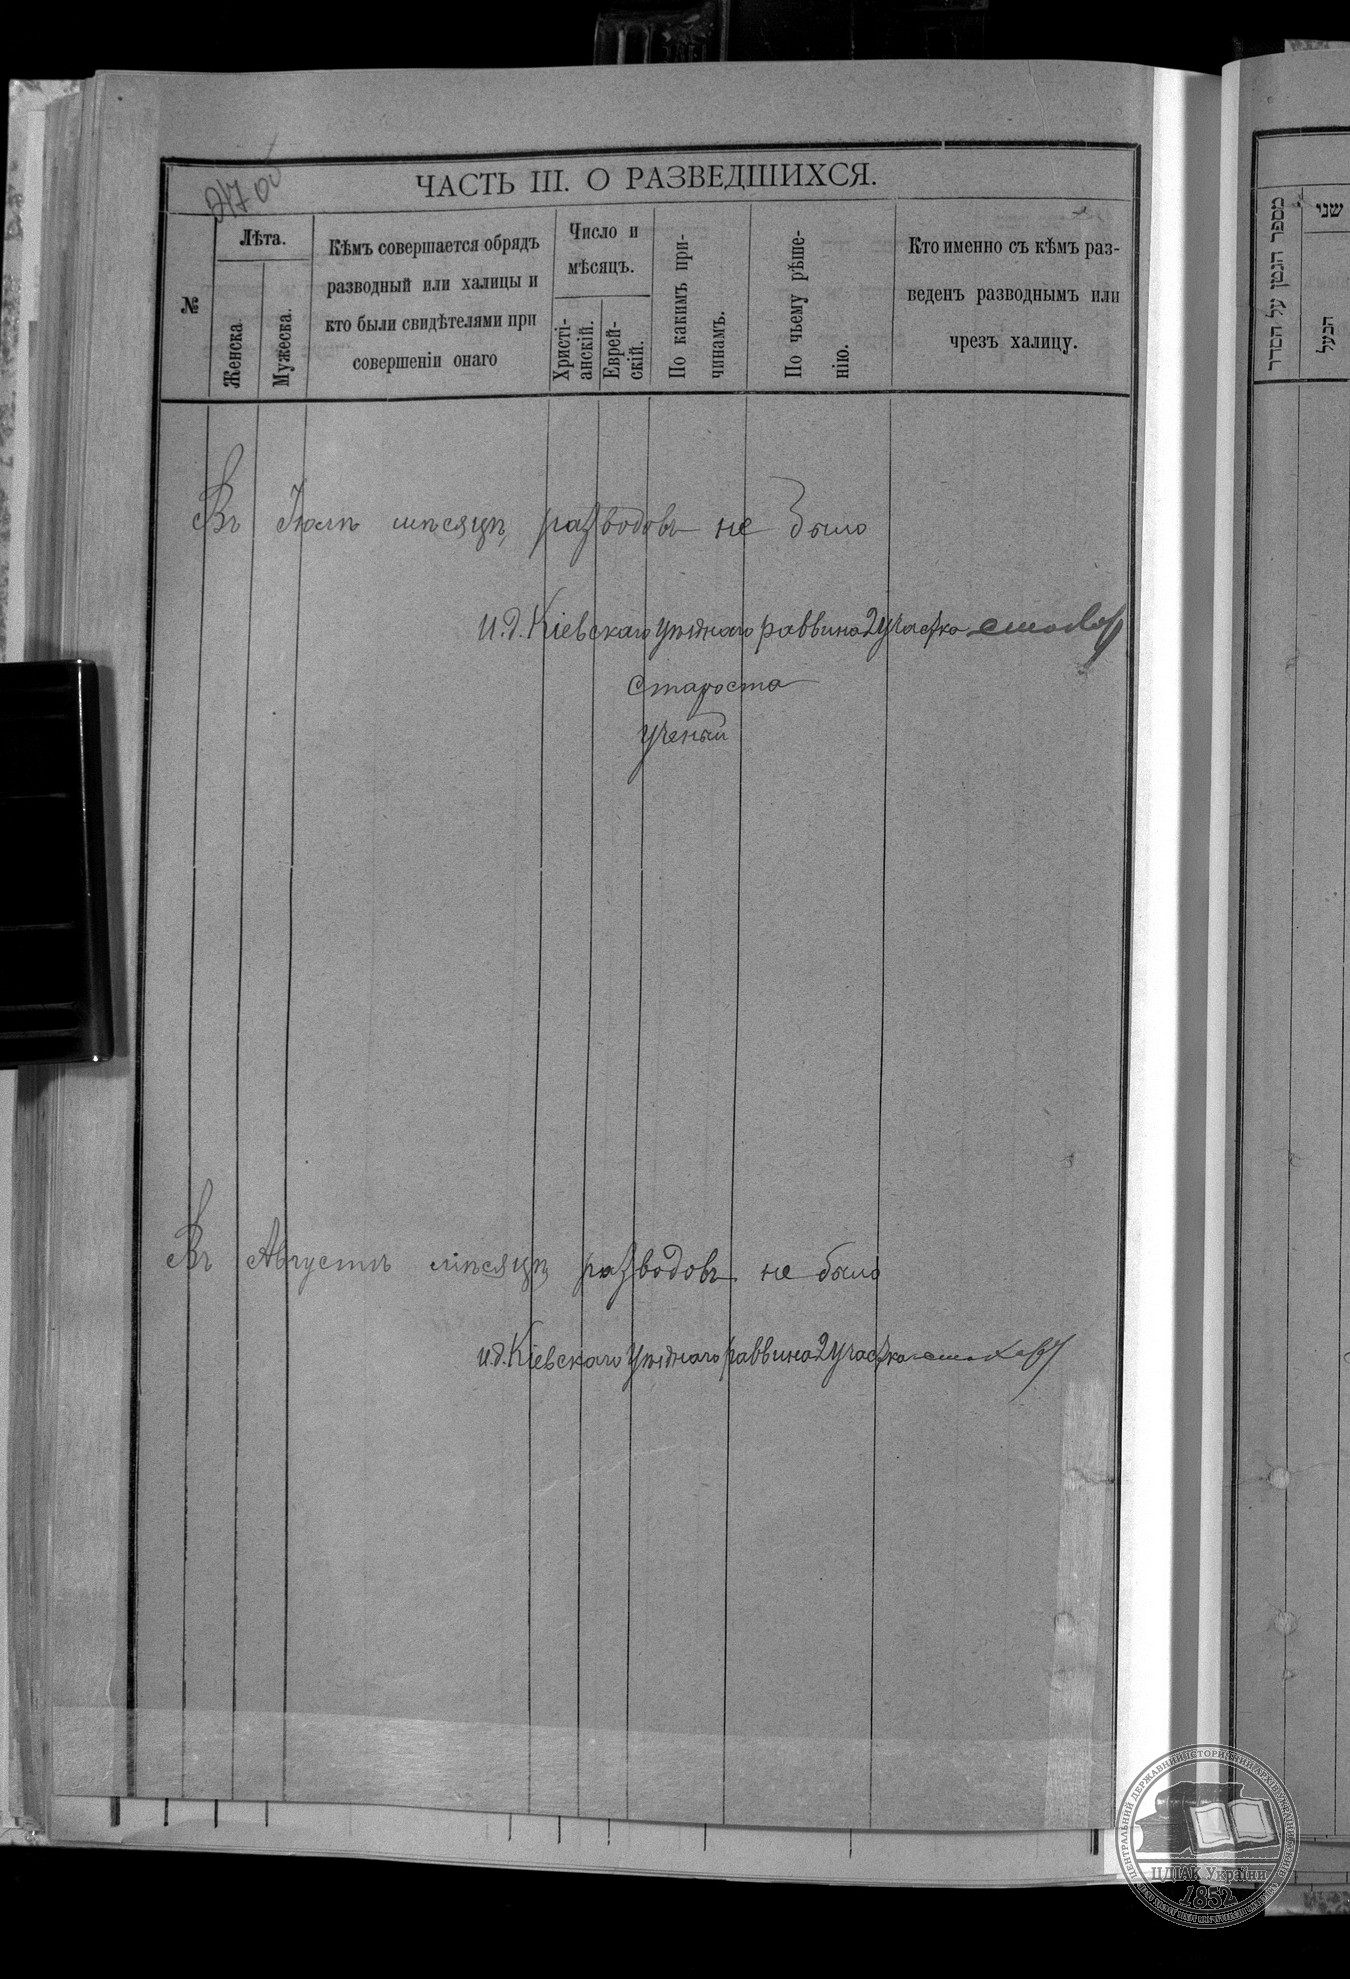 247 об
ЧАСТЬ III. О РАЗВЕДШИХСЯ.
№
Лѣта.
Женска.
Мужеска.
Кѣмъ совершается обрядъ
разводный или халицы и
кто были свидѣтелями при
совершеніи онаго
Число и
мѣсяцъ.
Христі-
анскій.
Еврей-
скій.
По какимъ при-
чинамъ.
По чьему рѣше-
нію.
Кто именно съ кѣмъ раз-
веденъ разводнымъ или
чрезъ халицу.
Въ Іюлѣ мѣсяцѣ разводовъ не было
И.д. Кіевскаго Уѣзднаго раввина 2 участка
Староста
Ученый
Въ Августѣ мѣсяцѣ разводовъ не было
И.д. Кіевскаго Уѣзднаго раввина 2 участка
מספר הגטין על הסדר
שני
הבעל
ЦДІАК України
1852